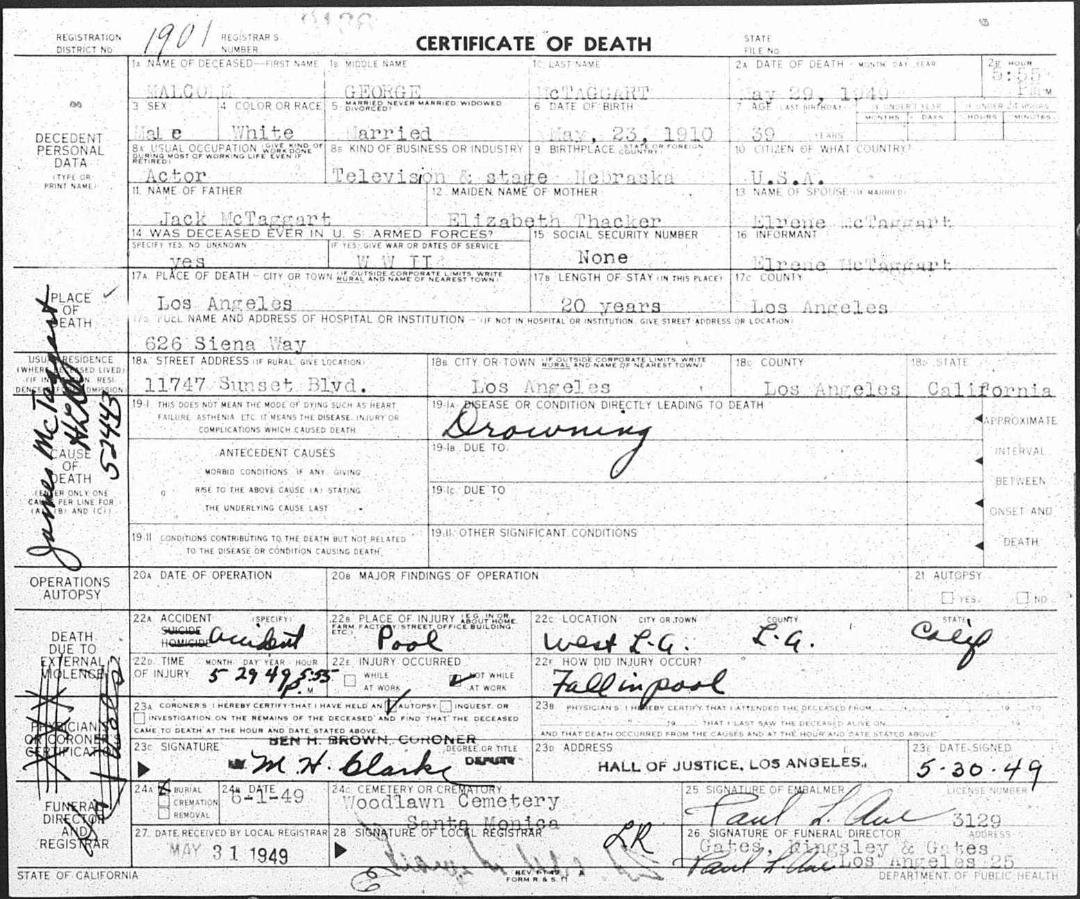 REGISTRATION DISTRICT NO. 1901 REGISTRAR'S NUMBER
CERTIFICATE OF DEATH
STATE FILE NO.
DECEDENT PERSONAL DATA (TYPE OR PRINT NAME)
1A NAME OF DECEASED—FIRST NAME 1B MIDDLE NAME 1C LAST NAME 2A DATE OF DEATH—MONTH DAY YEAR 2B HOUR
MALCOLM GEORGE McTAGGART May 29, 1949 5:55 P.M.
3 SEX 4 COLOR OR RACE 5 MARRIED NEVER MARRIED, WIDOWED DIVORCED? 6 DATE OF BIRTH 7 AGE (LAST BIRTHDAY) IF UNDER 1 YEAR MONTHS DAYS IF UNDER 24 HOURS HOURS MINUTES
Male White Married May, 23, 1910 39 YEARS
8A USUAL OCCUPATION GIVE KIND OF WORK DONE DURING MOST OF WORKING LIFE EVEN IF RETIRED) 8B KIND OF BUSINESS OR INDUSTRY 9 BIRTHPLACE (STATE OR FOREIGN COUNTRY) 10 CITIZEN OF WHAT COUNTRY?
Actor Televison & stage Nebraska U.S.A.
11. NAME OF FATHER 12 MAIDEN NAME OF MOTHER 13 NAME OF SPOUSE (IF MARRIED)
Jack McTaggart Elizabeth Thacker Elrene McTaggart
14 WAS DECEASED EVER IN U. S. ARMED FORCES? 15 SOCIAL SECURITY NUMBER 16 INFORMANT
SPECIFY YES, NO, UNKNOWN IF YES, GIVE WAR OR DATES OF SERVICE
yes W W II None Elrene McTaggart
PLACE OF DEATH
17A PLACE OF DEATH – CITY OR TOWN (IF OUTSIDE CORPORATE LIMITS, WRITE RURAL AND NAME OF NEAREST TOWN) 17B LENGTH OF STAY (IN THIS PLACE) 17C COUNTY
Los Angeles 20 years Los Angeles
17D FULL NAME AND ADDRESS OF HOSPITAL OR INSTITUTION – (IF NOT IN HOSPITAL OR INSTITUTION, GIVE STREET ADDRESS OR LOCATION)
626 Siena Way
USUAL RESIDENCE
18A STREET ADDRESS (IF RURAL, GIVE LOCATION) 18B CITY OR TOWN (IF OUTSIDE CORPORATE LIMITS, WRITE RURAL AND NAME OF NEAREST TOWN) 18C COUNTY 18D STATE
11747 Sunset Blvd. Los Angeles Los Angeles California
James McTaggart
52443
CAUSE OF DEATH (ENTER ONLY ONE CAUSE PER LINE FOR (A), (B) AND (C))
19-I THIS DOES NOT MEAN THE MODE OF DYING SUCH AS HEART FAILURE, ASTHENIA, ETC. IT MEANS THE DISEASE, INJURY OR COMPLICATIONS WHICH CAUSED DEATH.
19-IA DISEASE OR CONDITION DIRECTLY LEADING TO DEATH
Drowning
ANTECEDENT CAUSES
MORBID CONDITIONS IF ANY, GIVING RISE TO THE ABOVE CAUSE (A) STATING THE UNDERLYING CAUSE LAST
19-IB DUE TO
19-IC DUE TO
APPROXIMATE INTERVAL BETWEEN ONSET AND DEATH
19-II CONDITIONS CONTRIBUTING TO THE DEATH BUT NOT RELATED TO THE DISEASE OR CONDITION CAUSING DEATH
19-II OTHER SIGNIFICANT CONDITIONS
OPERATIONS AUTOPSY
20A DATE OF OPERATION 20B MAJOR FINDINGS OF OPERATION 21 AUTOPSY
YES NO
DEATH DUE TO EXTERNAL VIOLENCE
22A ACCIDENT SUICIDE HOMICIDE (SPECIFY) Accident
22B PLACE OF INJURY (E.G. IN OR ABOUT HOME, FARM, FACTORY, STREET, OFFICE BUILDING, ETC.) Pool
22C LOCATION CITY OR TOWN COUNTY STATE
West L.A. L.A. Calif
22D TIME OF INJURY MONTH DAY YEAR HOUR 5 29 49 5:55 P. M
22E INJURY OCCURRED WHILE AT WORK NOT WHILE AT WORK
22F HOW DID INJURY OCCUR?
Fall in pool
PHYSICIAN'S OR CORONER'S CERTIFICATION
23A CORONER'S: I HEREBY CERTIFY THAT I HAVE HELD AN AUTOPSY, INQUEST, OR INVESTIGATION ON THE REMAINS OF THE DECEASED AND FIND THAT THE DECEASED CAME TO DEATH AT THE HOUR AND DATE STATED ABOVE.
23B PHYSICIAN'S: I HEREBY CERTIFY THAT I ATTENDED THE DECEASED FROM 19 TO 19 THAT I LAST SAW THE DECEASED ALIVE ON AND THAT DEATH OCCURRED FROM THE CAUSES AND AT THE HOUR AND DATE STATED ABOVE
BEN H. BROWN, CORONER
23C SIGNATURE DEGREE OR TITLE 23D ADDRESS 23E DATE SIGNED
M. H. Clarke DEPUTY HALL OF JUSTICE, LOS ANGELES, 5-30-49
FUNERAL DIRECTOR AND REGISTRAR
24A BURIAL CREMATION REMOVAL 24B DATE 24C CEMETERY OR CREMATORY 25 SIGNATURE OF EMBALMER LICENSE NUMBER
6-1-49 Woodlawn Cemetery Santa Monica 3129
27. DATE RECEIVED BY LOCAL REGISTRAR 28 SIGNATURE OF LOCAL REGISTRAR 26 SIGNATURE OF FUNERAL DIRECTOR ADDRESS
MAY 31 1949 LR Gates, Kingsley & Gates
Los Angeles 25
STATE OF CALIFORNIA REV. 1-1-49 FORM R. & S. 11 DEPARTMENT OF PUBLIC HEALTH